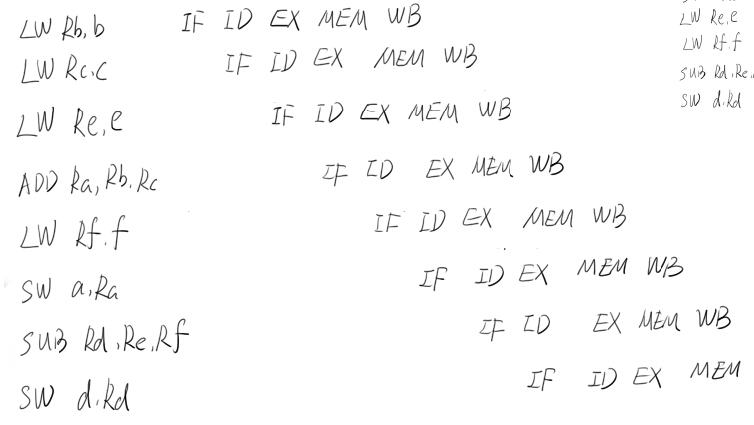 LW Rb,b IF ID EX MEM WB
LW Rc,c IF ID EX MEM WB
LW Re,e IF ID EX MEM WB
ADD Ra,Rb,Rc IF ID EX MEM WB
LW Rf,f IF ID EX MEM WB
SW a,Ra IF ID EX MEM WB
SUB Rd,Re,Rf IF ID EX MEM WB
SW d,Rd IF ID EX MEM
LW Re,e
LW Rf,f
SUB Rd,Re,
SW d,Rd